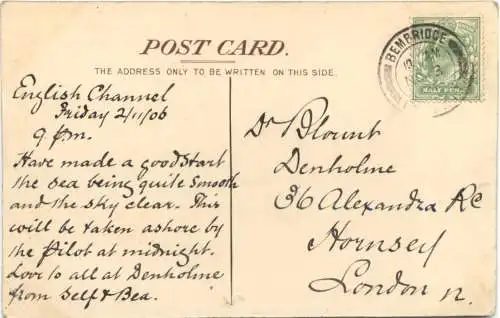 POST CARD.
THE ADDRESS ONLY TO BE WRITTEN ON THIS SIDE.
BEMBRIDGE
HALF PENNY
English Channel
Friday 2/11/06
9 pm.
Have made a good start
the sea being quite smooth
and the sky clear. This
will be taken ashore by
the Pilot at midnight.
Love to all at Denholme
from self & Bea.
Dr Blount
Denholme
36 Alexandra Rd
Hornsey
London N.